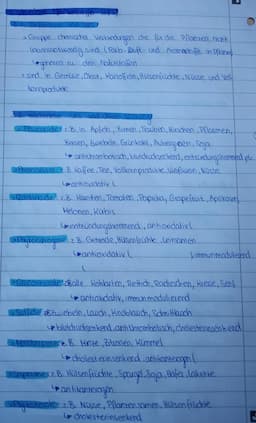 - Gruppe chemischer Verbindungen die für die Pflanzen nicht
lebensnotwendig sind (Farb-, Duft- und Aromastoffe in Pflanzen)
↳ gehören zu den Naturstoffen
- sind in Gemüse, Obst, Kartoffeln, Hülsenfrüchte, Nüsse und Voll-
kornprodukte
z.B. in Äpfeln, Birnen, Trauben, Kirschen, Pflaumen,
Beeren, Zwiebeln, Grünkohl, Auberginen, Soja
↳ antithrombotisch, blutdrucksenkend, entzündungshemmend
z.B. Kaffee, Tee, Vollkornprodukte, Weißwein, Nüsse
↳ antioxidativ
z.B. Karotten, Tomaten, Paprika, Grapefruit, Aprikosen,
Melonen, Kürbis
↳ entzündungshemmend, antioxidativ
z.B. Getreide, Hülsenfrüchte, Leinsamen
↳ antioxidativ immunmodulierend
alle Kohlarten, Rettich, Radieschen, Kresse, Senf
↳ antioxidativ, immunmodulierend
Sulfide Zwiebeln, Lauch, Knoblauch, Schnittlauch
↳ blutdrucksenkend, antithrombotisch, cholesterinsenkend
z.B. Minze, Zitronen, Kümmel
↳ cholesterinsenkend, antikanzerogen
z.B. Hülsenfrüchte, Spargel, Soja, Hafer, Lakritze
↳ antikanzerogen
z.B. Nüsse, Pflanzensamen, Hülsenfrüchte
↳ cholesterinsenkend